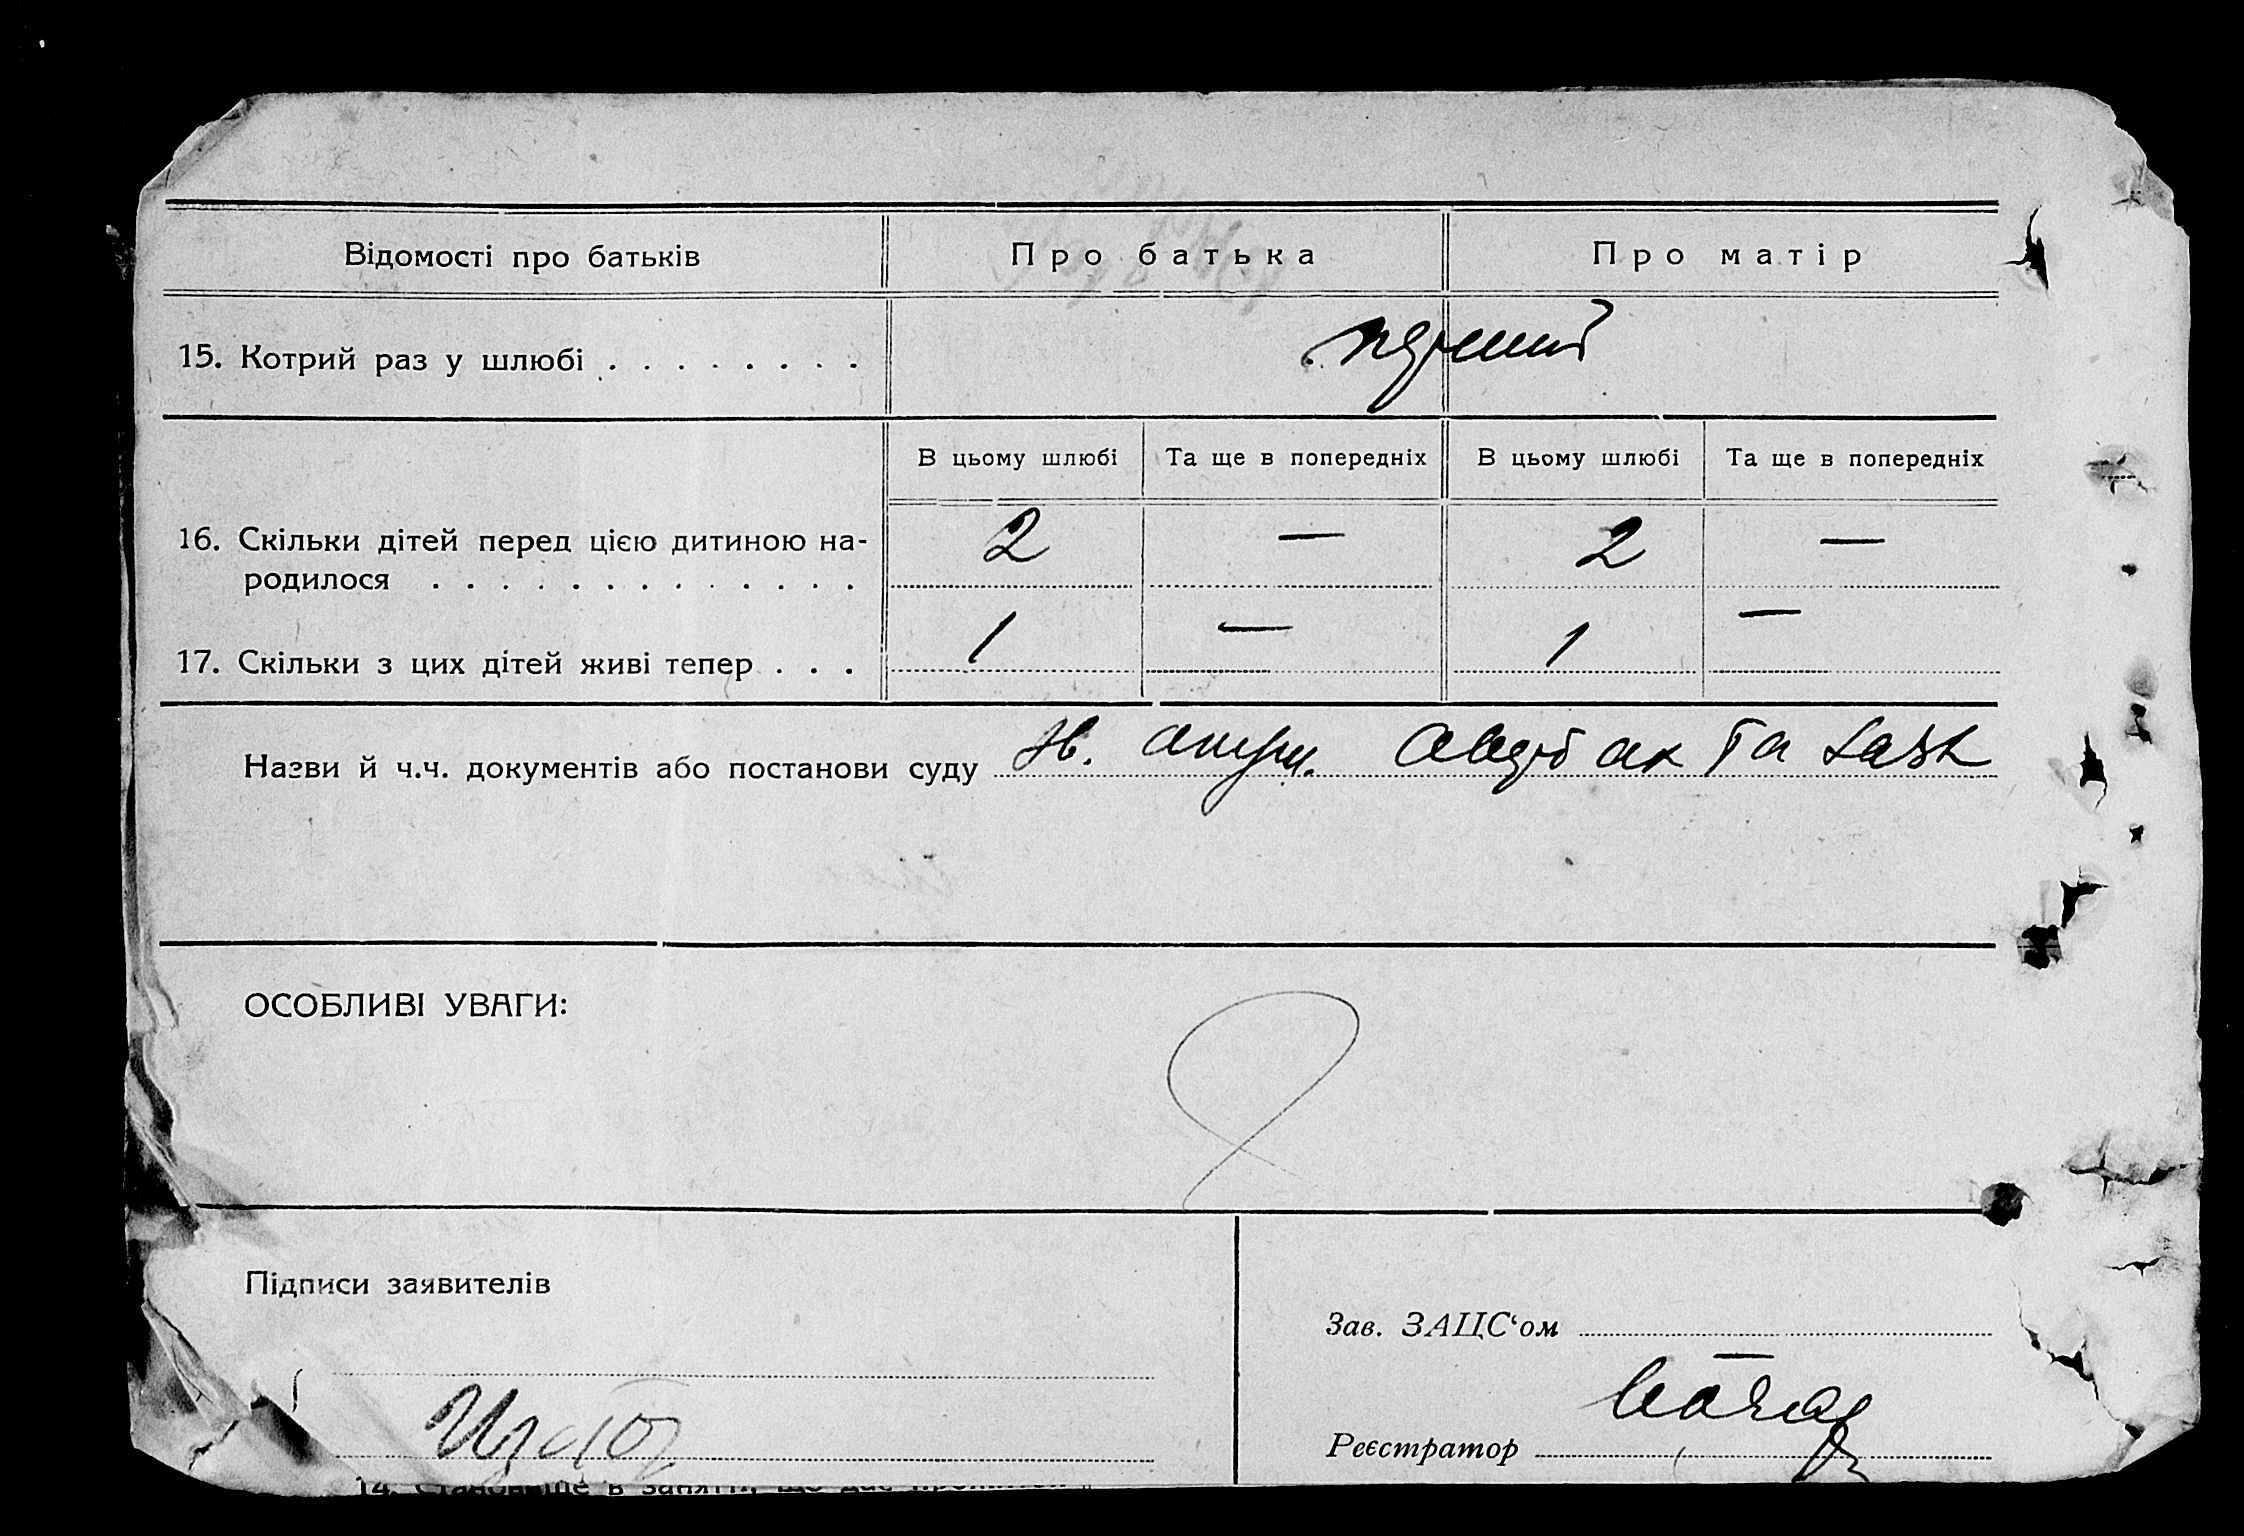 Відомості про батьків Про батька Про матір
15. Котрий раз у шлюбі . . . . . . . . перший
В цьому шлюбі Та ще в попередніх В цьому шлюбі Та ще в попередніх
16. Скільки дітей перед цією дитиною на- 2 — 2 —
родилося . . . . . . . . . . . . .
17. Скільки з цих дітей живі тепер . . . 1 — 1 —
Назви й ч.ч. документів або постанови суду та
ОСОБЛИВІ УВАГИ:
Підписи заявителів
Зав. ЗАЦС‘ом —
Реєстратор
14. Становище в занятті, що дає прожиток